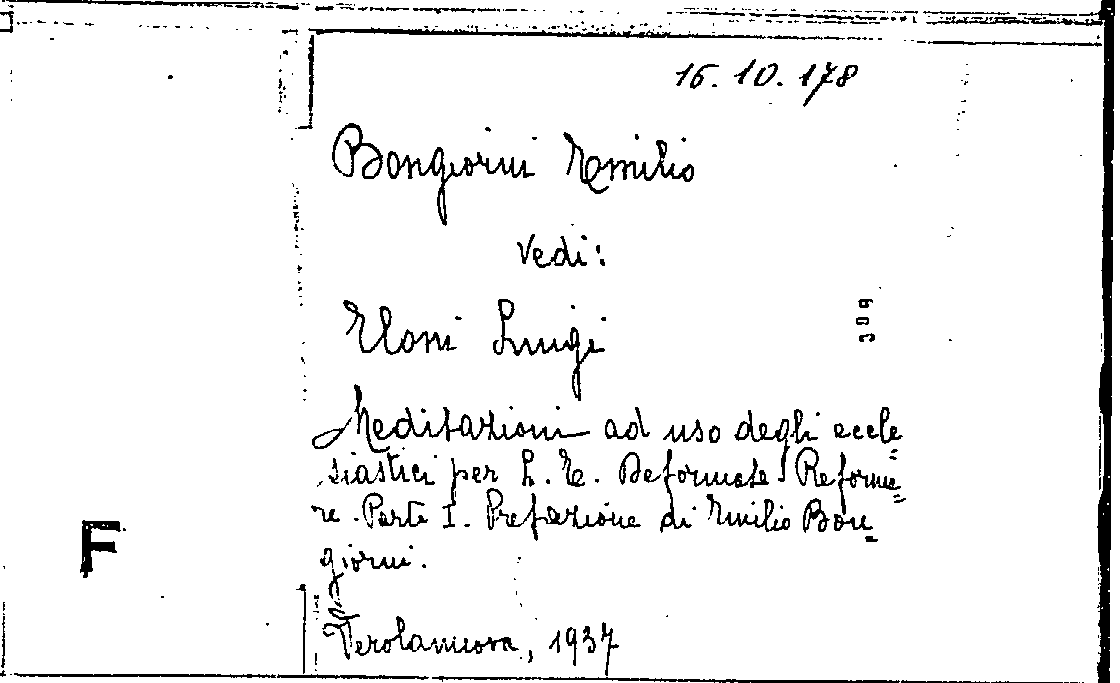 16.10.178
Bongiorni Emilio
Vedi:
Eloni Luigi
309
Meditazioni ad uso degli eccle=
siastici per L. E. Deformate Reforma=
re. Parte I. Prefazione di Emilio Bon=
giorni.
F
Verolanuova, 1937